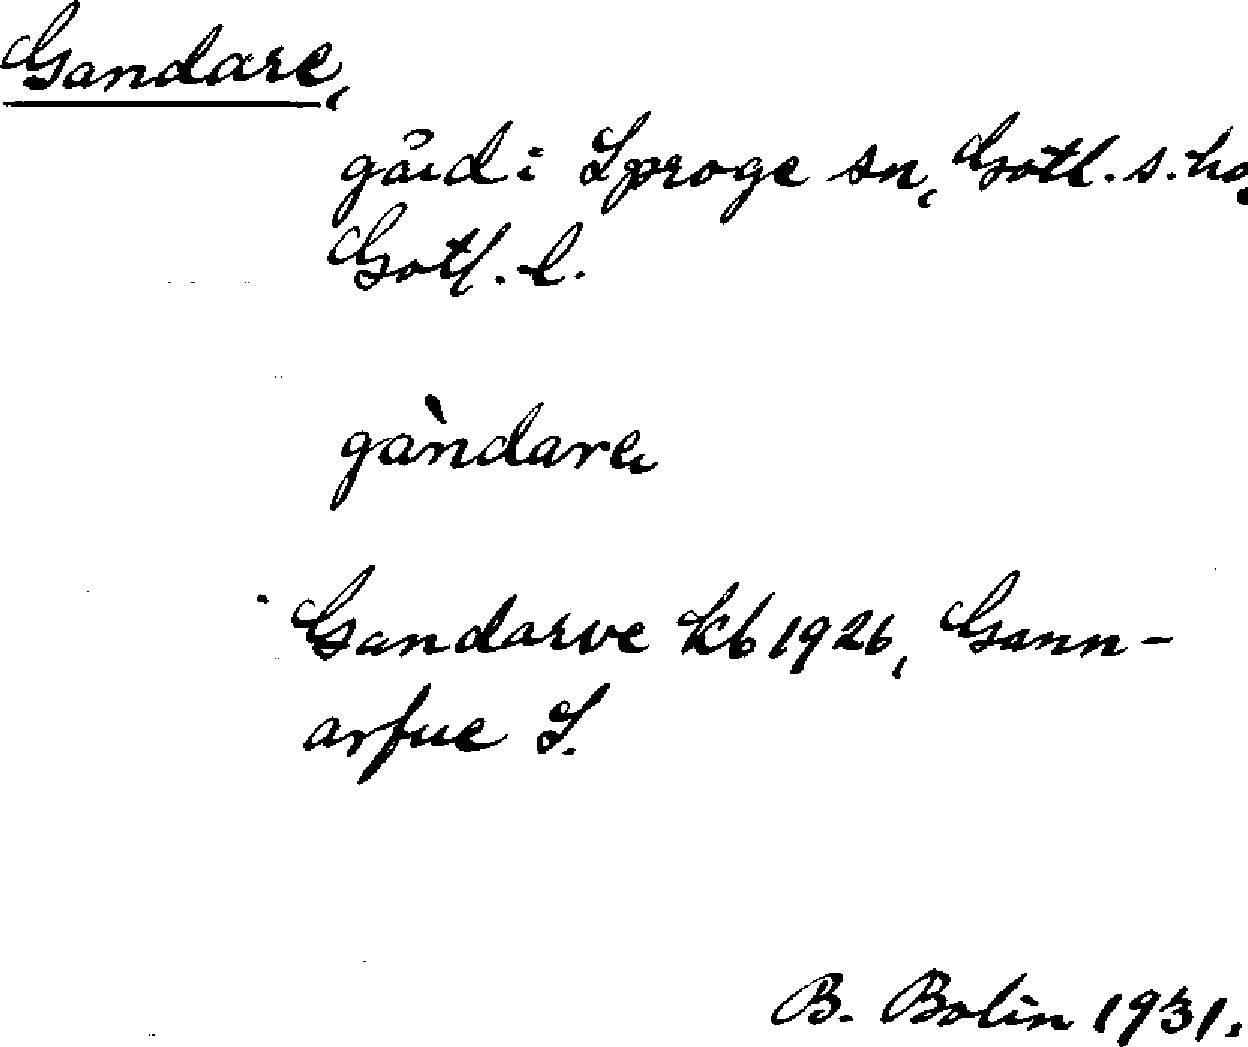 Gandare,
gård i Sproge sn, Gotl. s. hd,
Gotl. l.
gàndare,
Gandarve kb 1926, Gann-
arfue S.
B. Bolin 1931.